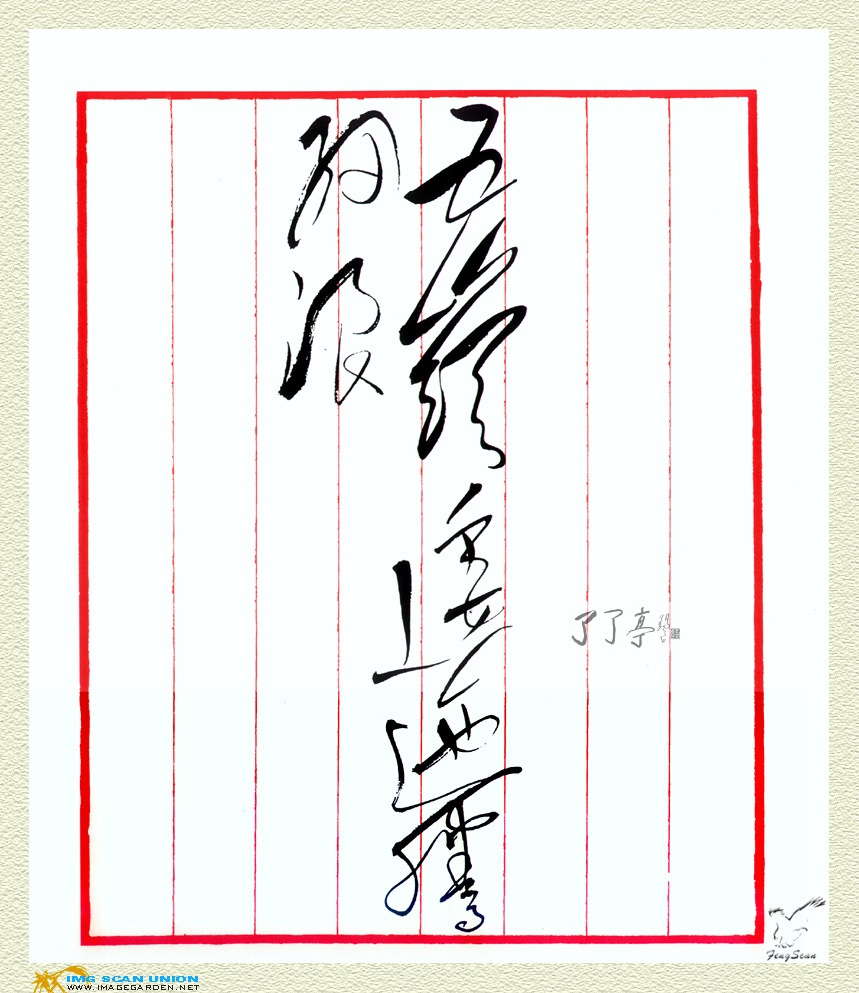 五嶺逶迤騰
細浪
了了亭
FengScan
IMG SCAN UNION
WWW.IMAGEGARDEN.NET